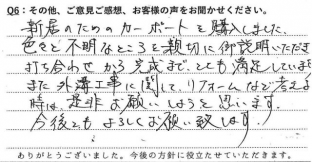 Q6：その他、ご意見ご感想、お客様の声をお聞かせください。
新居のためのカーポートを購入しました。
色々と不明なところを親切に御説明いただき
打ち合わせから完成まで、とても満足しています
また外溝工事に関して、リフォームなど考える
時は是非お願いしようと思います。
今後ともよろしくお願い致します。
ありがとうございました。今後の方針に役立たせていただきます。